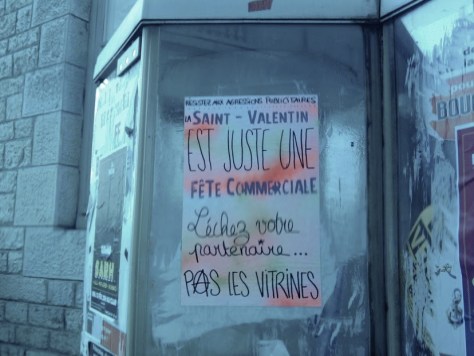 RÉSISTEZ AUX AGRESSIONS PUBLICITAIRES
LA SAINT - VALENTIN
EST JUSTE UNE
FÊTE COMMERCIALE
Léchez votre
partenaire...
PAS LES VITRINES